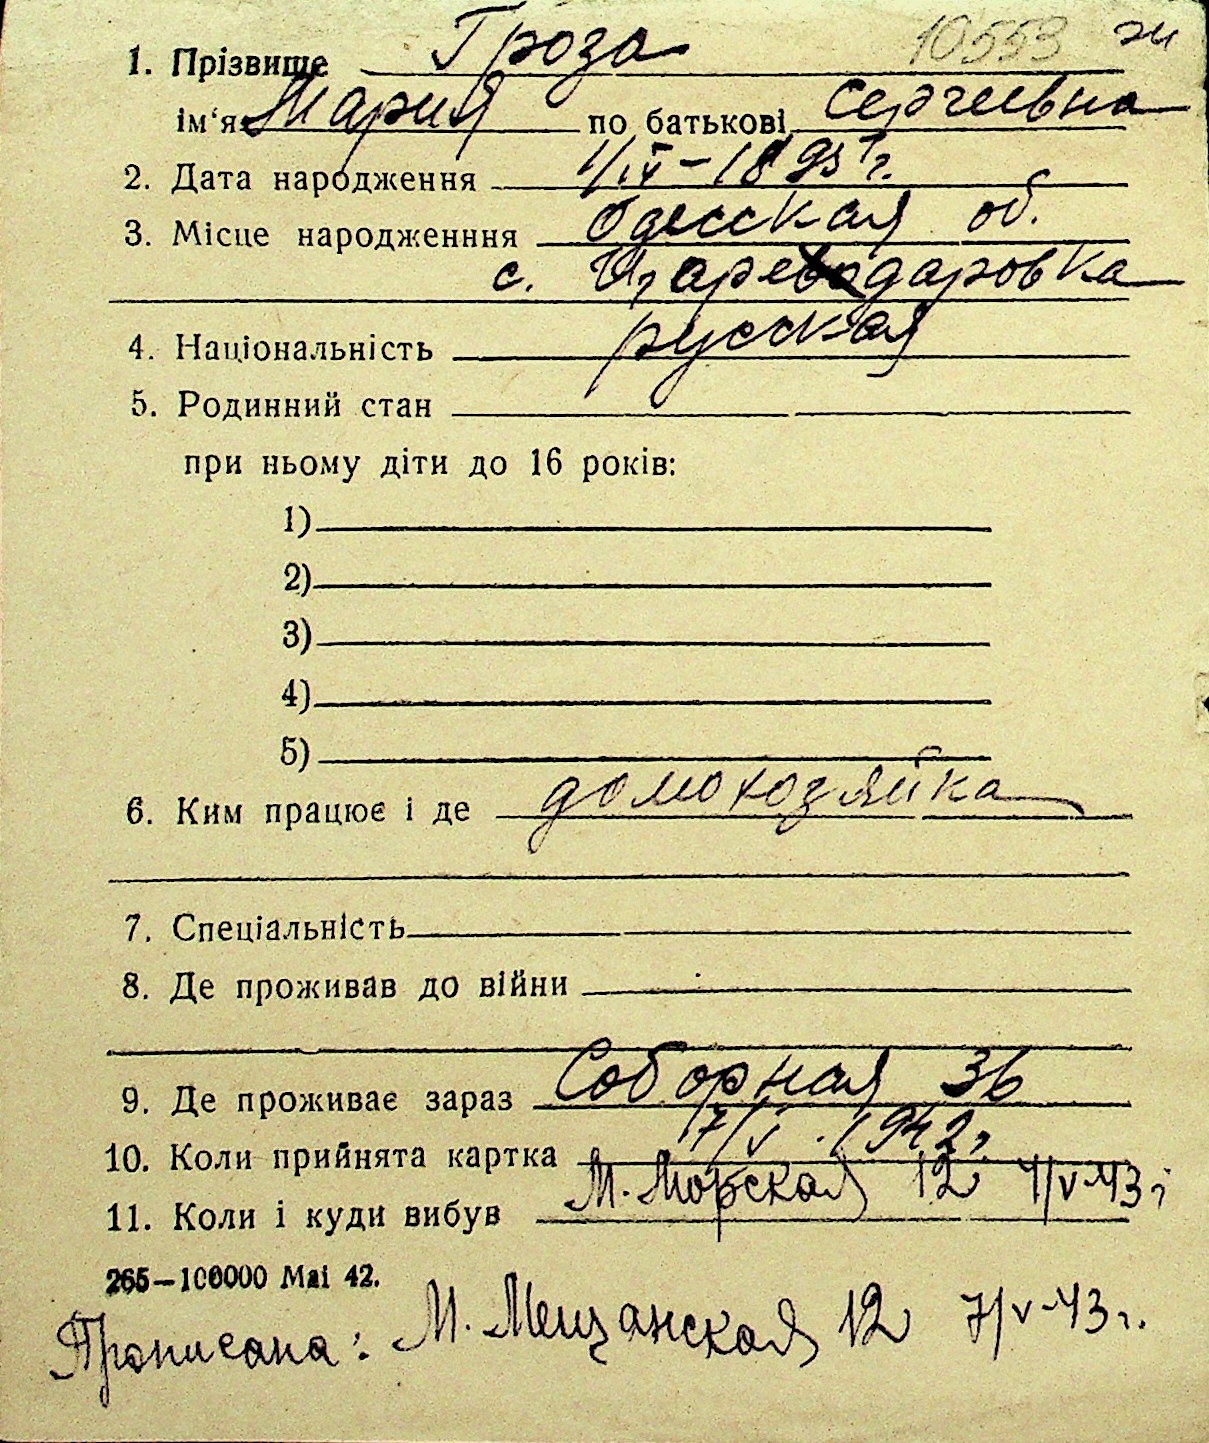 10553 эи
1. Прізвище Гроза
ім'я Мария по батькові Сергеевна
2. Дата народження 1/IV-1895 г.
3. Місце народженння Одесская об.
с. Цареводаровка
4. Національність русская
5. Родинний стан
при ньому діти до 16 років:
1)
2)
3)
4)
5)
6. Ким працює і де домохозяйка
7. Спеціальність
8. Де проживав до війни
9. Де проживає зараз Соборная 36
10. Коли прийнята картка 7/V. 1942г.
11. Коли і куди вибув М. Морская 12 7/V-43г
265—100000 Mai 42.
Прописана: М. Мещанская 12 7/V-43г.